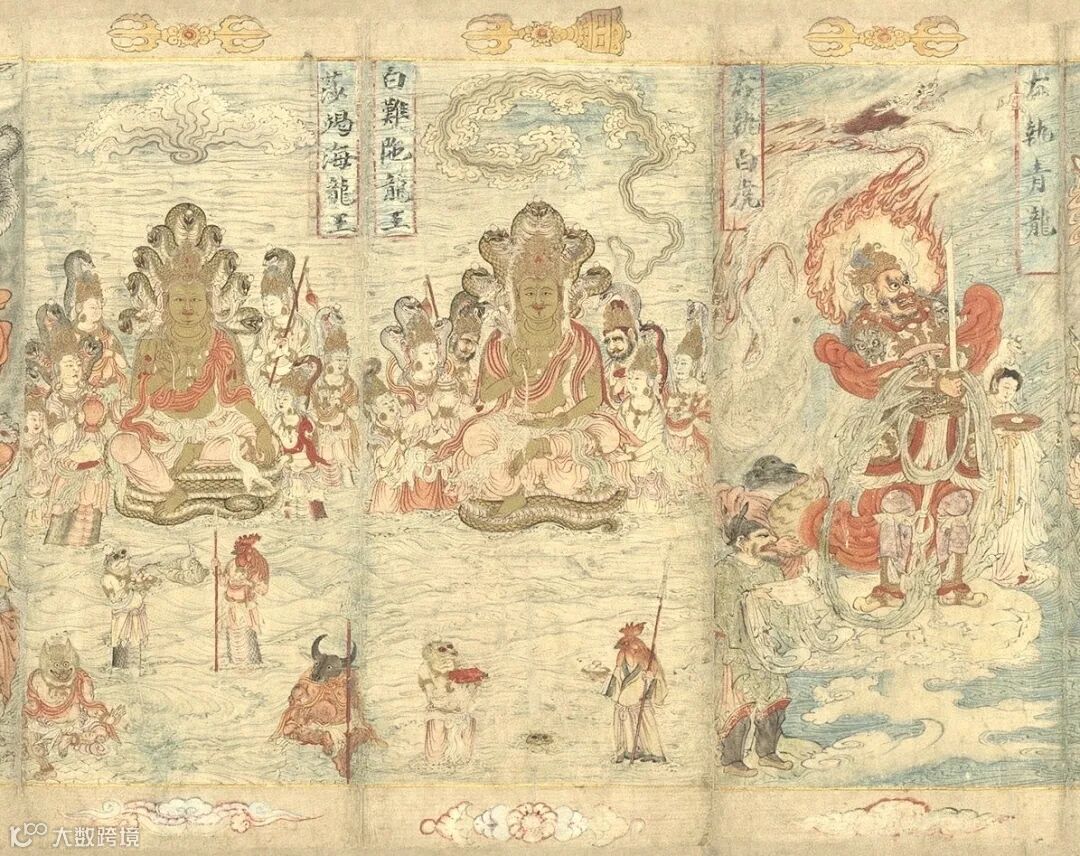 左執青龍
右執白虎
白難陁龍王
莎竭海龍王
大数跨境